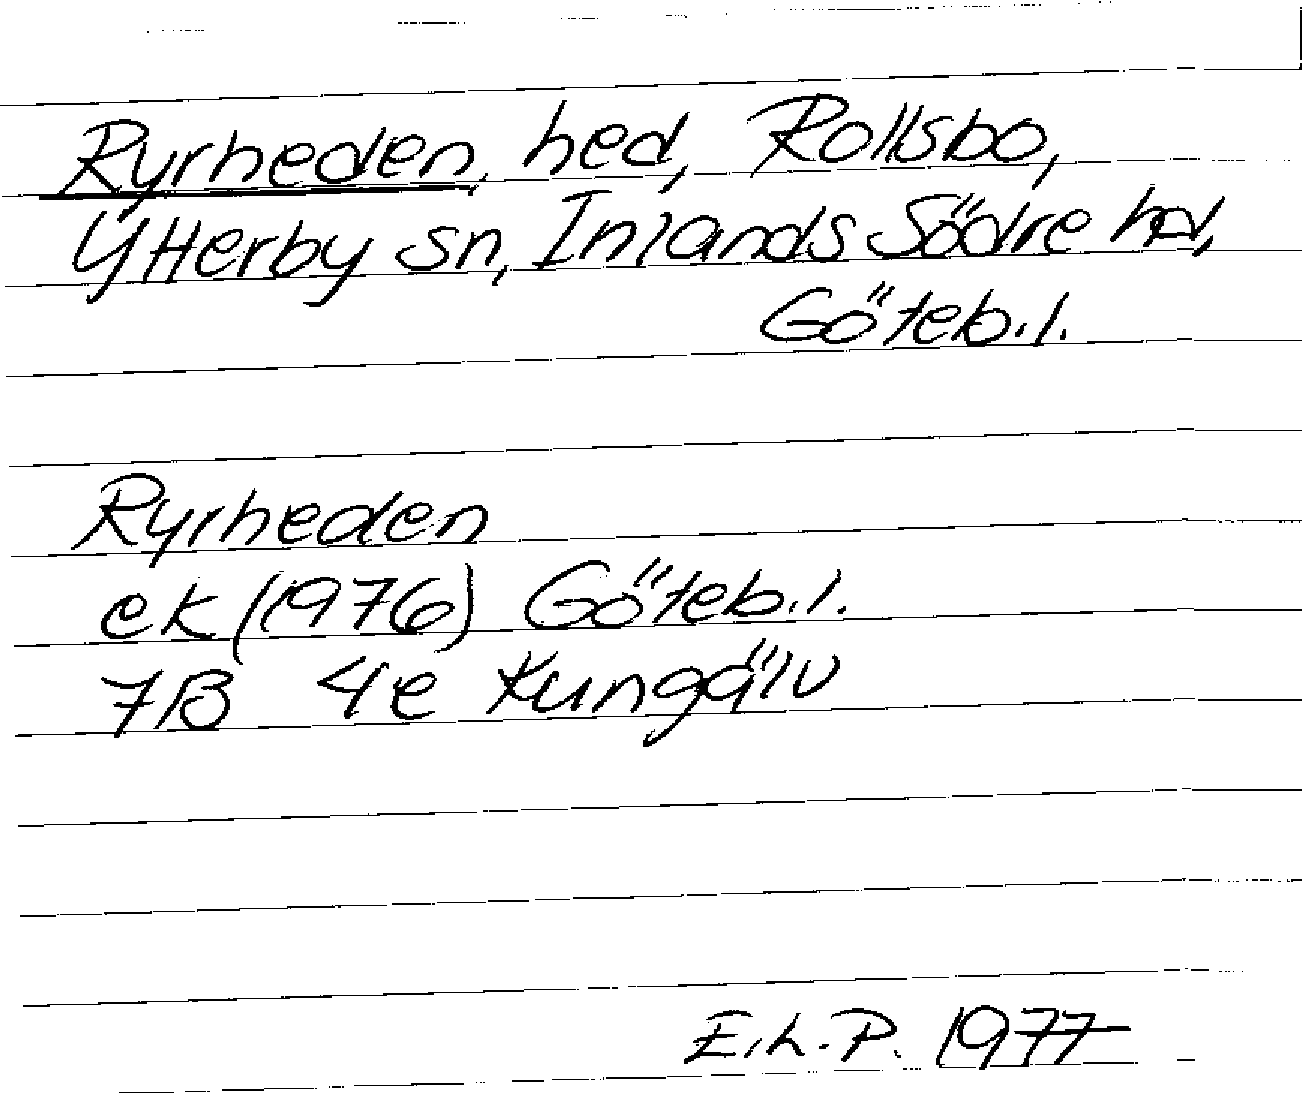 Ryrheden, hed, Rollsbo,
Ytterby sn, Inlands Södre hd,
Göteb.l.
Ryrheden
ek (1976) Göteb.l.
7B 4e Kungälv
E.L.P. 1977